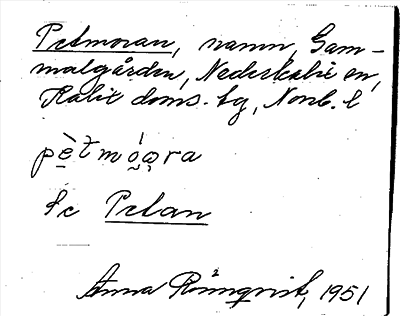 Petmoran, namn, Gam-
malgården, Nederkalix sn,
Kalix doms. tg, Nonb. l
pètmóọra
Se Petan
Anna Rönnqvist, 1951